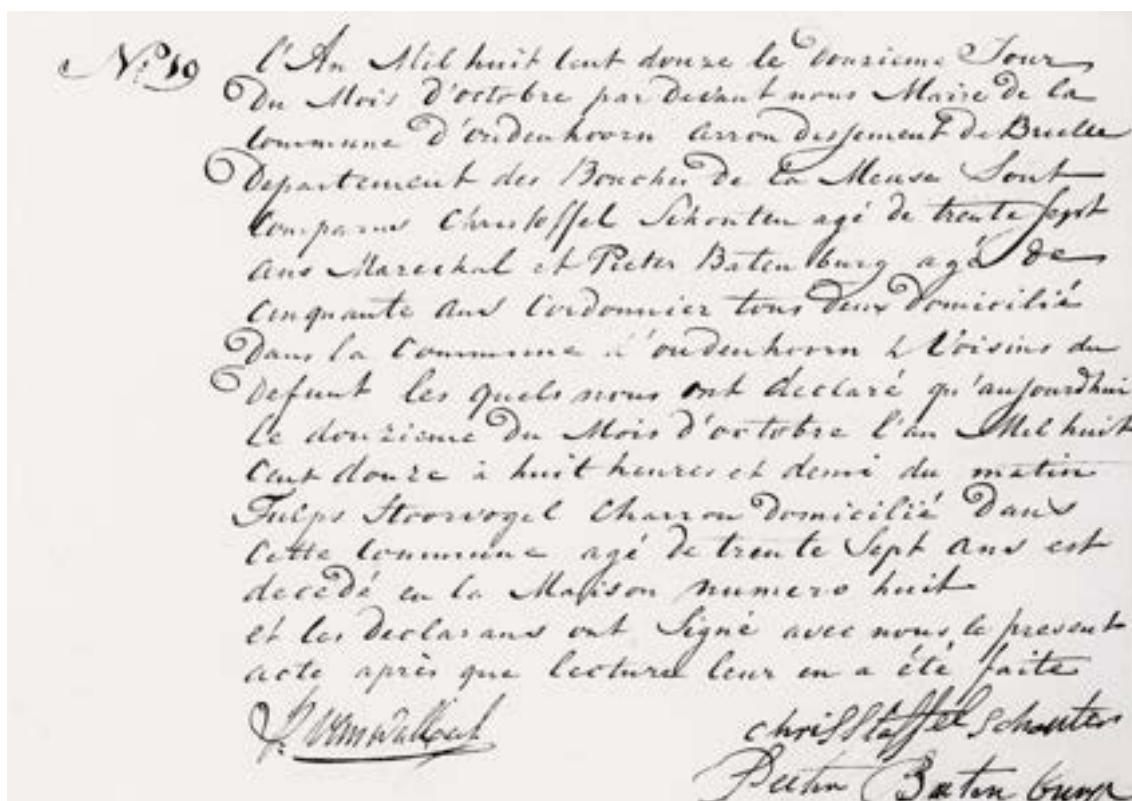 No 19
l'An Mil huit Cent douze le Douzieme Jour
Du Mois D'octobre par Devant nous Maire de la
Commune D'oudenhoorn arrondissement de Brielle
Departement des Bouches De la Meuse Sont
Comparus Christoffel Schouten agé de trente Sept
ans Marechal et Pieter Batenburg agé De
Cinquante ans Cordonnier tous Deux Domicilié
Dans la Commune d'oudenhoorn & Voisins du
Defunt les quels nous ont declaré qu'aujourdhui
le douzieme Du Mois D'octobre l'an Mil huit
Cent douze à huit heures et demi du matin
Fulps Stoorvogel Charron Domicilié Dans
Cette Commune agé de trente Sept ans est
decedé en la Maison numero huit
et les Declarans ont Signé avec nous le present
acte après que lecture leur en a été faite
Christtaffel Schouten
Peeter Batenburg